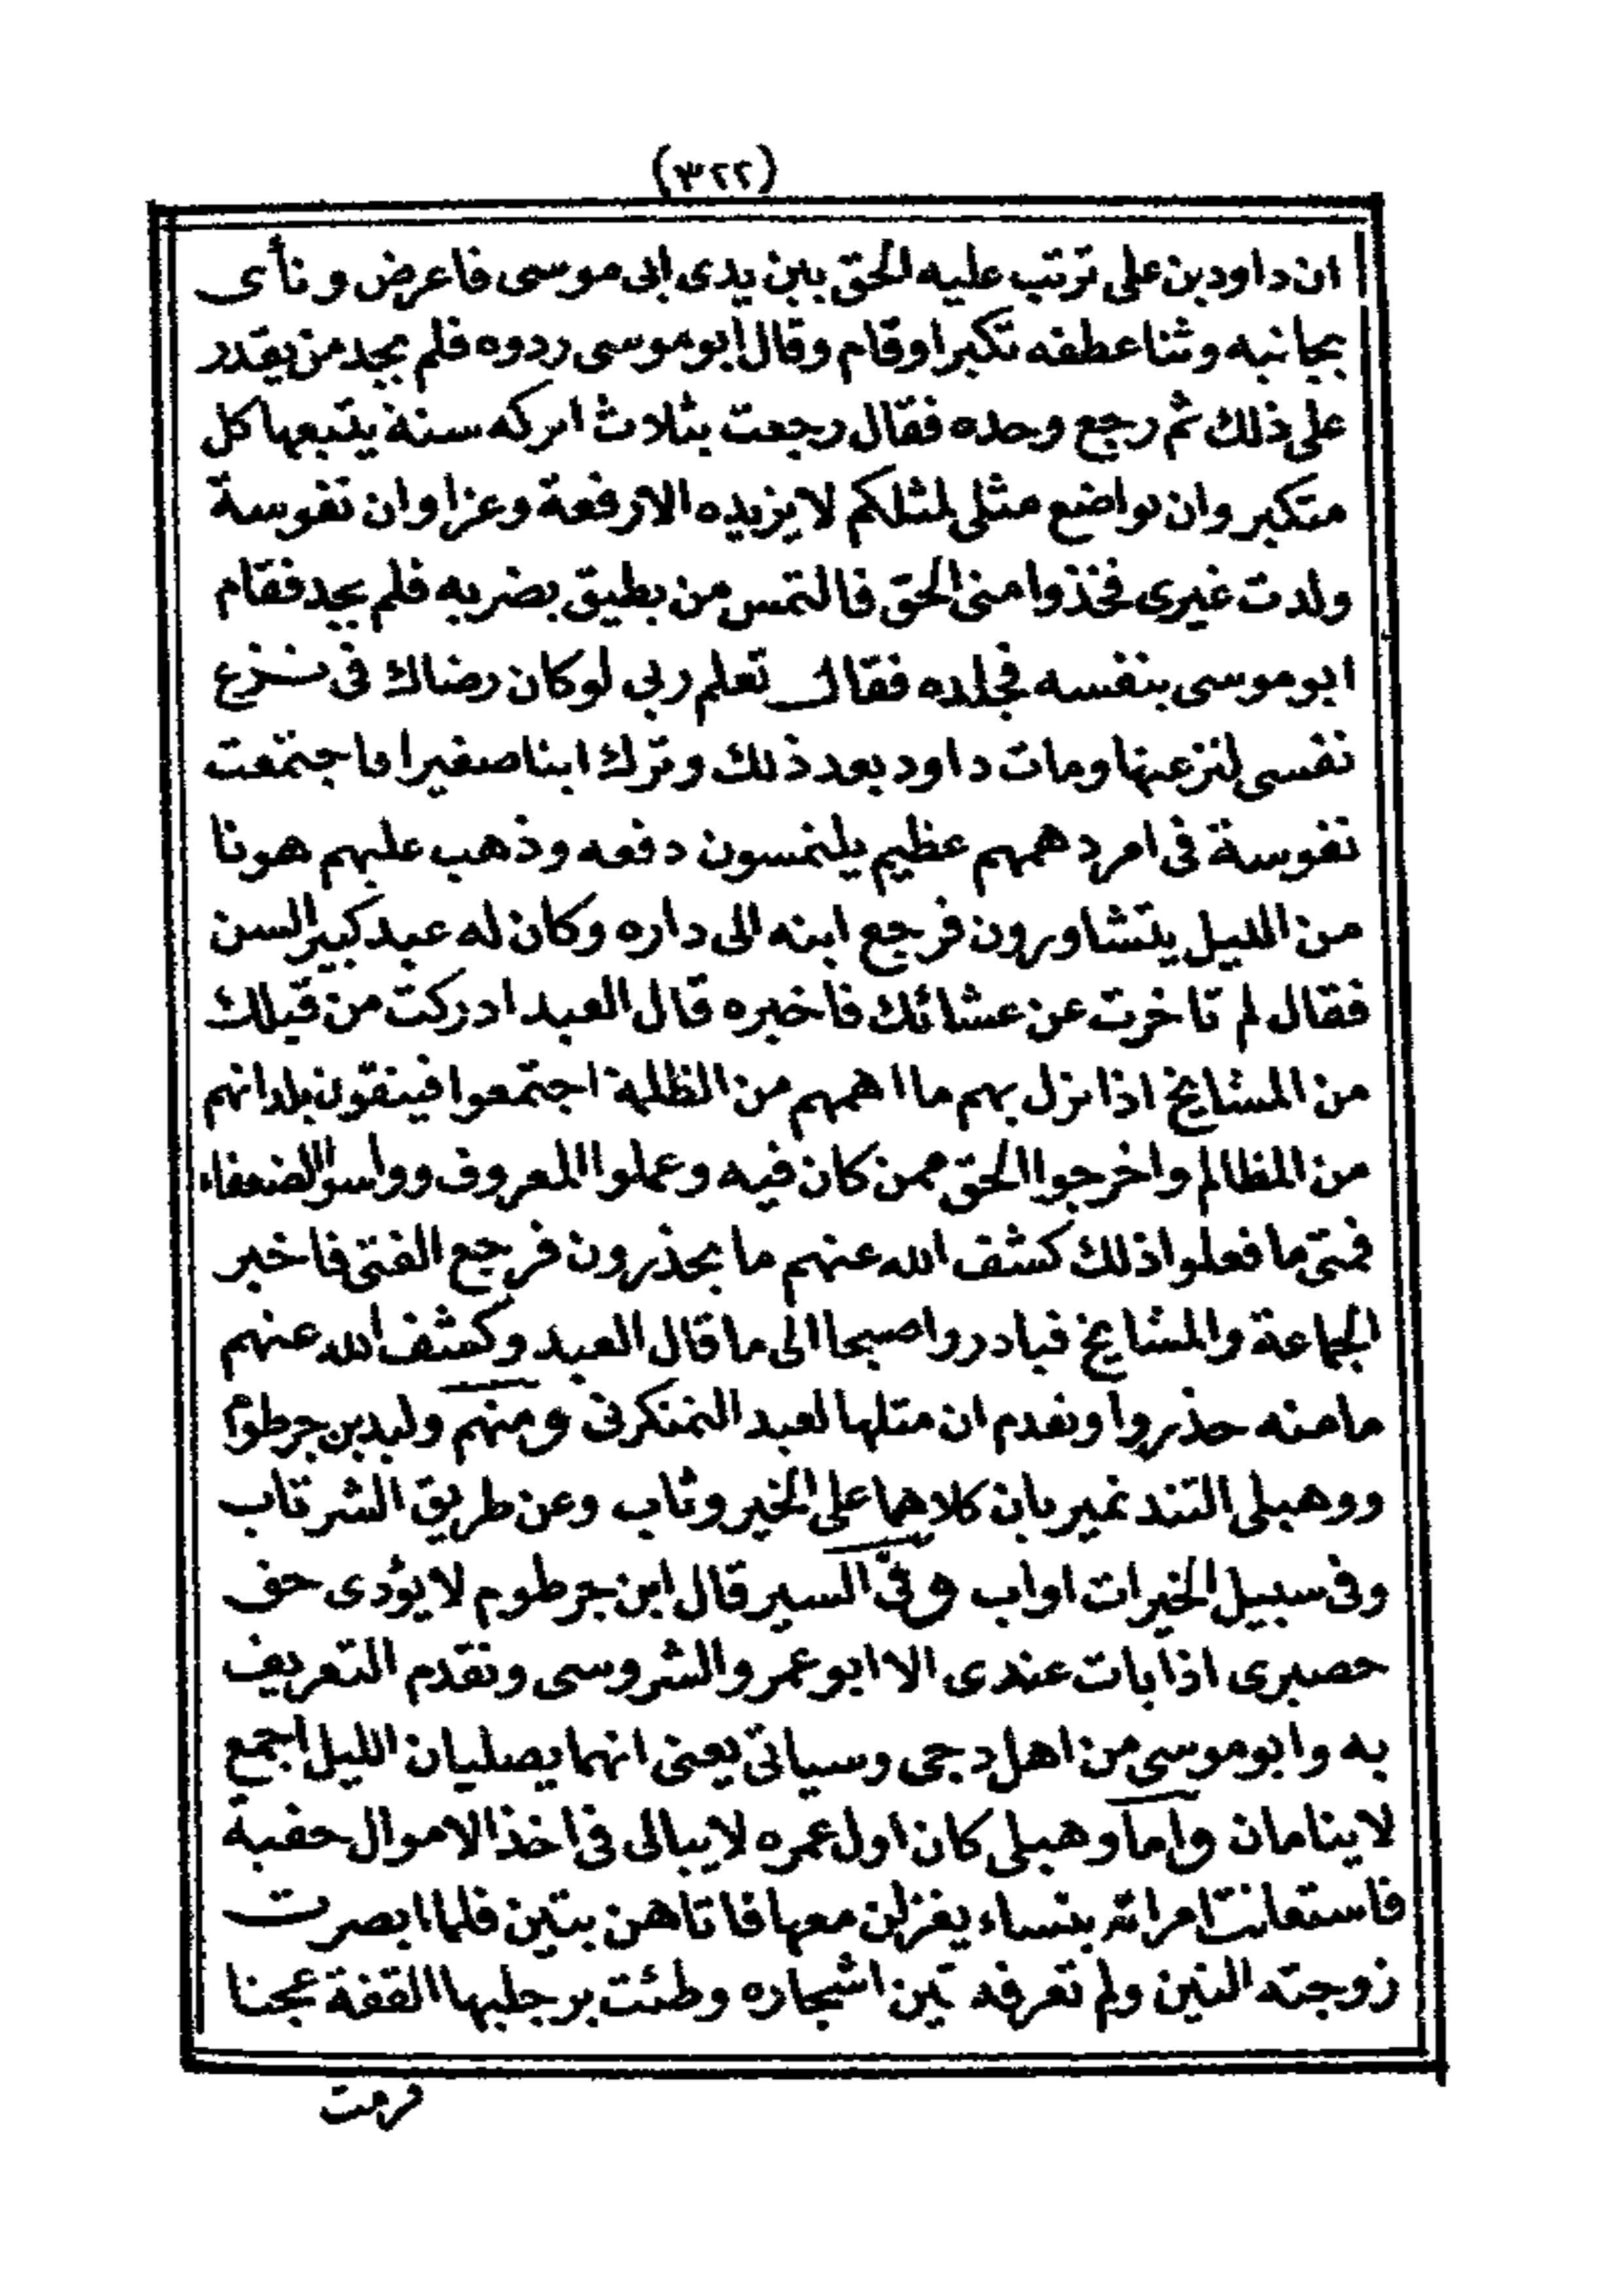 (٣٢٢)
ان داود بن على ترتب عليه الحق بين يدى ابى موسى فاعرض ونأى
بجانبه وثنا عطفه تكبرا وقام وقال أبو موسى ردوه فلم يجد من يقدر
على ذلك ثم رجع وحده فقال رجعت بثلاث اتركه سنة يتبعها كل
متكبر وان تواضع مثلى لمثلكم لا يزيده الا رفعة وعزا وان نفوسة
ولدت غيرى فخذوا منى الحق فالتمس من يطيق بضربه فلم يجد فقام
ابو موسى بنفسه فجلده فقال تعلم ربى لو كان رضاك فى نزع
نفسى لنزعنها ومات داود بعد ذلك وترك ابنا صغيرا فاجتمعت
نفوسة فى امر دهمهم عظيم يلتمسون دفعه وذهب عليهم هونا
من الليل يتشاورون فرجع ابنه الى داره وكان له عبد كبير السن
فقال لم تاخرت عن عشائك فاخبره قال العبد ادركت من قبلك
من المشايخ اذا نزل بهم ما اهمهم من الظلمة اجتمعوا فينقون بلدانهم
من المظالم واخرجوا الحق ممن كان فيه وعملوا المعروف وواسوا الضعفاء
فمتى ما فعلوا ذلك كشف الله عنهم ما يحذرون فرجع الفتى فاخبر
الجماعة والمشايخ فبادروا صبحا الى ما قال العبد وكشف الله عنهم
ما منه حذروا وتقدم ان مثلها لعبد التمنكرنى ومنهم وليد بن جرطوم
ووهبلى التندنميريان كلاهما على الخير وثاب وعن طريق الشر تاب
وفى سبيل الخيرات اواب وفى السير قال ابن جرطوم لا يؤدى حق
حصيرى اذا بات عندى الا ابو عمرو الشروسى وتقدم التعريف
به وابو موسى من اهل دجى وسياتى يعنى انهما يصليان الليل اجمع
لا ينامان واما وهبلى كان اول عمره لا يبالى فى اخذ الاموال حقبة
فاستعانت امراته بنساء يغزلن معها فاتاهن بتين فلما ابصرت
زوجته التين ولم تعرفه تين اشجاره وطئت برجليها القفة عجنا
فرمت